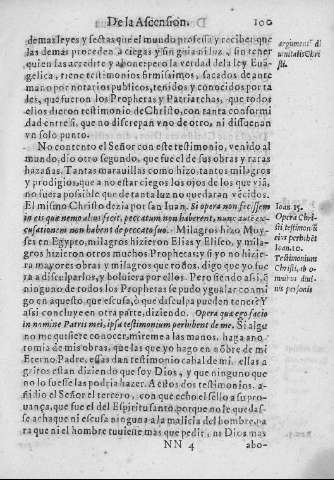 De la Ascension. 100
demas leyes y sectas que el mundo professa y recibe: que
las demas proceden a ciegas y sin guia ni luz, sin tener
quien las acredite y abone: pero la verdad de la ley Euã-
gelica, tiene testimonios firmissimos, sacados de ante
mano por notarios publicos, tenidos y conocidos por ta
les, que fueron los Prophetas y Patriarchas, que todos
ellos dieron testimonio de Christo, con tanta conformi
dad entre si, que no discrepan vno de otro, ni dissuenan
vn solo punto.
No contento el Señor con este testimonio, venido al
mundo, dio otro segundo, que fue el de sus obras y raras
hazañas. Tantas marauillas como hizo, tantos milagros
y prodigios, que a no estar ciegos los ojos de los que viã,
no fuera possible que de tanta luz no quedaran vēcidos.
El mismo Christo dezia por san Iuan. Si opera non fecissem
in eis que nemo alius fecit, peccatum non haberent, nunc autē ex-
cusationem non habent de peccato suo. Milagros hizo Moy-
ses en Egypto, milagros hizieron Elias y Eliseo, y mila-
gros hizieron otros muchos Prophetas: y si yo no hizie
ra mayores obras y milagros que todos, digo que yo fue
ra a disculparlos, y boluiera por ellos. Pero siendo assi, q̃
ninguno de todos los Prophetas se pudo ygualar conmi
go en aquesto, que escusa, ò que disculpa pueden tener? Y
assi concluye en otra parte, diziendo. Opera quæ ego facio
in nomine Patris mei, ipsa testimonium perhibent de me. Si algu
no me quisiere conocer, mireme a las manos. haga ano-
tomia de mis obras, que las que yo hago en nõbre de mi
Eterno Padre, essas dan testimonio cabal de mi. ellas a
gritos estan diziendo que soy Dios, y que ninguno que
no lo fuesse las podria hazer. A estos dos testimonios. a-
ñadio el Señor el tercero, con que echo el sello a su pro-
uança, que fue el del Espiritu santo, porque no le quedas-
se achaque ni escusa ninguna a la malicia del hombre, pa
ra que ni el hombre tuuiesse mas que pedir, ni Dios mas
NN 4 abo-
argument. d
unitatis Chri
sti.
Ioan. 15.
Opera Chri-
sti testimoniũ
eius perhibēt
Ioan. 10.
Testimonium
Christi, ab o-
mnibus diui-
nis personis